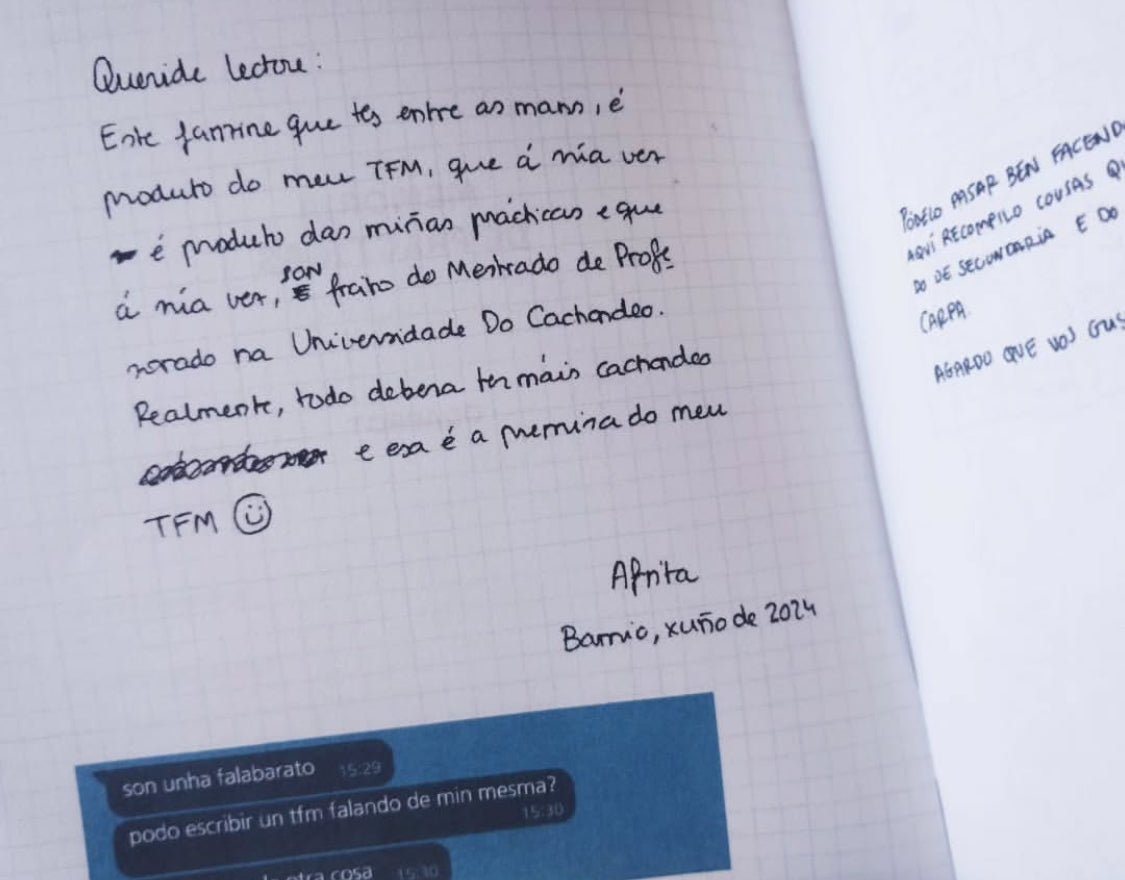 Queride lectore:
Este fanzine que tes entre as mans, é
produto do meu TFM, que á súa vez
é produto das miñas prácticas e que
á súa vez, SON froito do Mestrado de Profe
sorado na Universidade Do Cachondeo.
Realmente, todo debería ter máis cachondeo
e esa é a premisa do meu
TFM
Afrita
Barrio, xuño de 2024
son unha falabarato 15:29
podo escribir un tfm falando de min mesma?
15:30
otra cosa 15:30
PÓDELO PASAR BEN FACENDO
AQUÍ RECOMPILO COUSAS
DO DE SECUNDARIA E DO
CARPA.
AGARDO QUE VOS